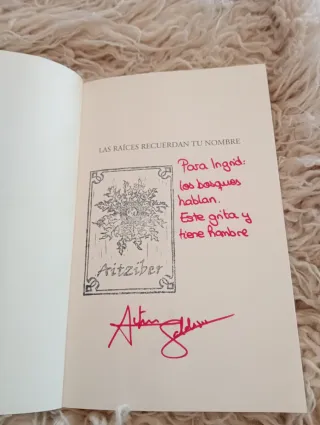 LAS RAÍCES RECUERDAN TU NOMBRE
Para Ingrid:
los bosques
hablan.
Este grita y
tiene hambre
Aitziber